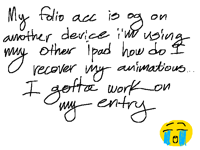 My folio acc is og on
another device i'm using
my other Ipad how do I
recover my animations...
I gotta work on
my entry